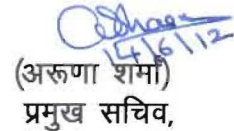 14/6/12
(अरूणा शर्मा)
प्रमुख सचिव,